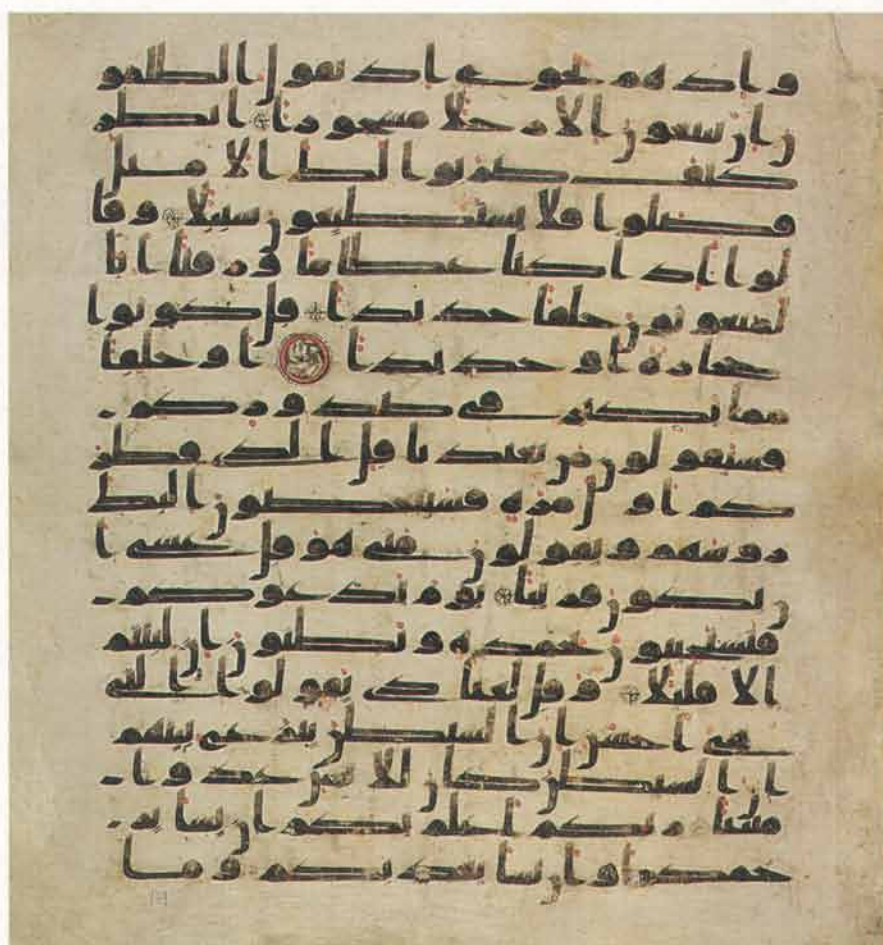 واذ هم نجوى اذ يقول الظلمو
ن ان تتبعون الا رجلا مسحورا انظر
كيف ضربوا لك الامثل
فضلوا فلا يستطيعون سبيلا وقا
لوا اذا كنا عظاما ورفتا انا
لمبعوثون خلقا جديدا قل كونوا
حجارة او حديدا او خلقا
مما يكبر في صدوركم
فسيقولون من يعيدنا قل الذي فطر
كم اول مرة فسينغضون اليك
روسهم ويقولون متى هو قل عسى ا
ن يكون قريبا يوم يدعوكم
فتستجيبون بحمده وتظنون ان لبثتم
الا قليلا وقل لعبادي يقولوا التي
هي احسن ان الشيطن ينزغ بينهم
ان الشيطن كان للانسن عدوا
مبينا ربكم اعلم بكم ان يشا ير
حمكم او ان يشا يعذبكم وما